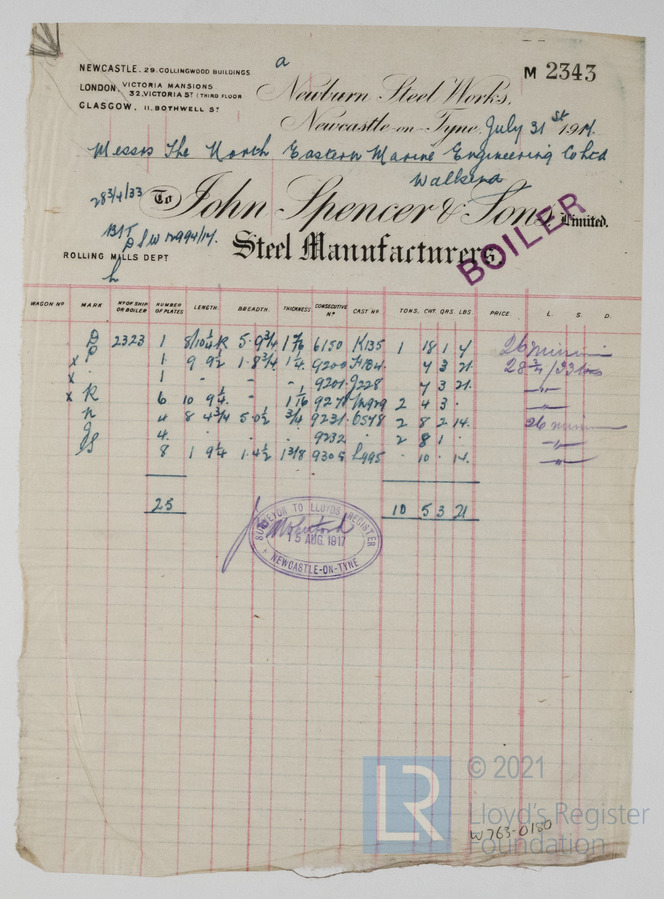 a
M 2343
NEWCASTLE. 29. COLLINGWOOD BUILDINGS
LONDON. VICTORIA MANSIONS
32, VICTORIA ST (THIRD FLOOR
GLASGOW. 11, BOTHWELL ST
Newburn Steel Works,
Newcastle-on-Tyne, July 31st 1917.
Messrs The North Eastern Marine Engineering Co Ltd
Wallsend
28 3/4/33
To John Spencer & Sons Limited.
Steel Manufacturers,
BOILER
ROLLING MILLS DEPT
WAGON No MARK No OF SHIP OR BOILER NUMBER OF PLATES LENGTH. BREADTH. THICKNESS CONSECUTIVE No CAST No TONS. CWT. QRS. LBS. PRICE. L. S. D.
D 2323 1 5.9 3/4 1 7/16 6150 K135 1 18 1 4
x P 1 9 9 1/2 1.8 3/4 1 1/4 9200 4 3 21 28 3/4/33
x 1 9201 J228 4 3 21
x K 6 10 9 1/4 1 1/16 2 4 3
n 4 8 4 3/4 5.0 1/2 3/4 9231 6548 2 8 2 14 26
J 4 9232 2 8 1
8 1 9 1/4 1.4 1/2 1 3/8 9305 L995 10 14
25 10 5 3 21
SURVEYOR TO LLOYDS REGISTER
15 AUG. 1917
NEWCASTLE-ON-TYNE
LR
© 2021
Lloyd's Register
Foundation
W763-0180